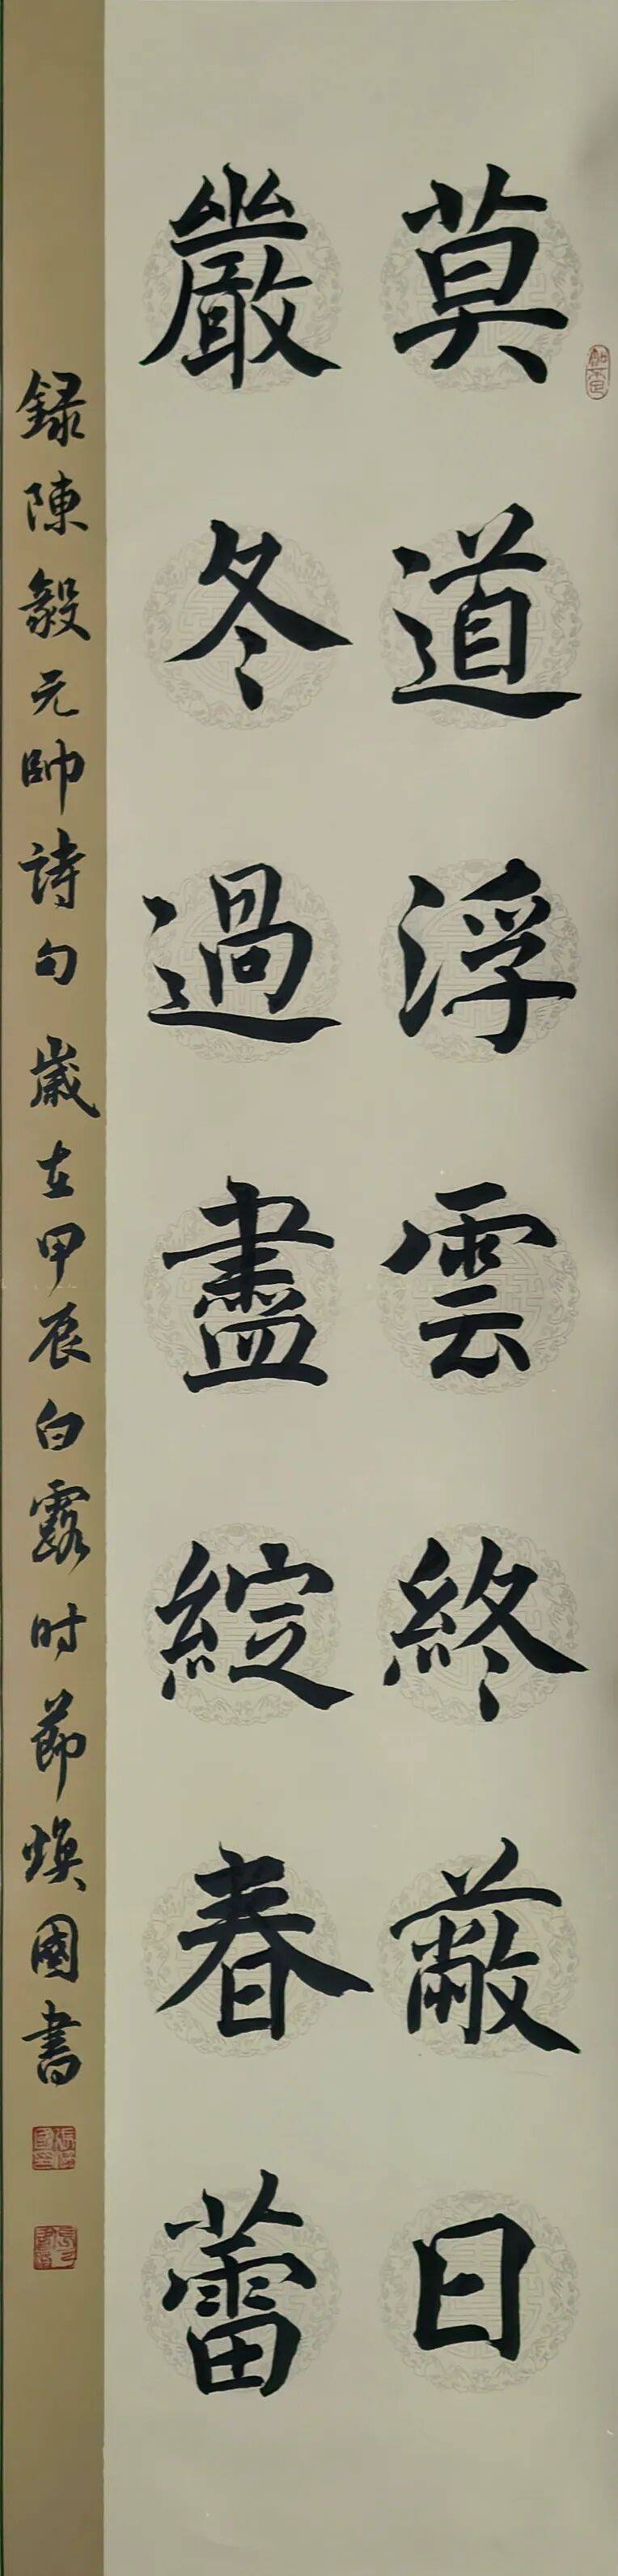 莫道浮雲終蔽日
嚴冬過盡綻春蕾
録陳毅元帥詩句歲在甲辰白露时節焕國書